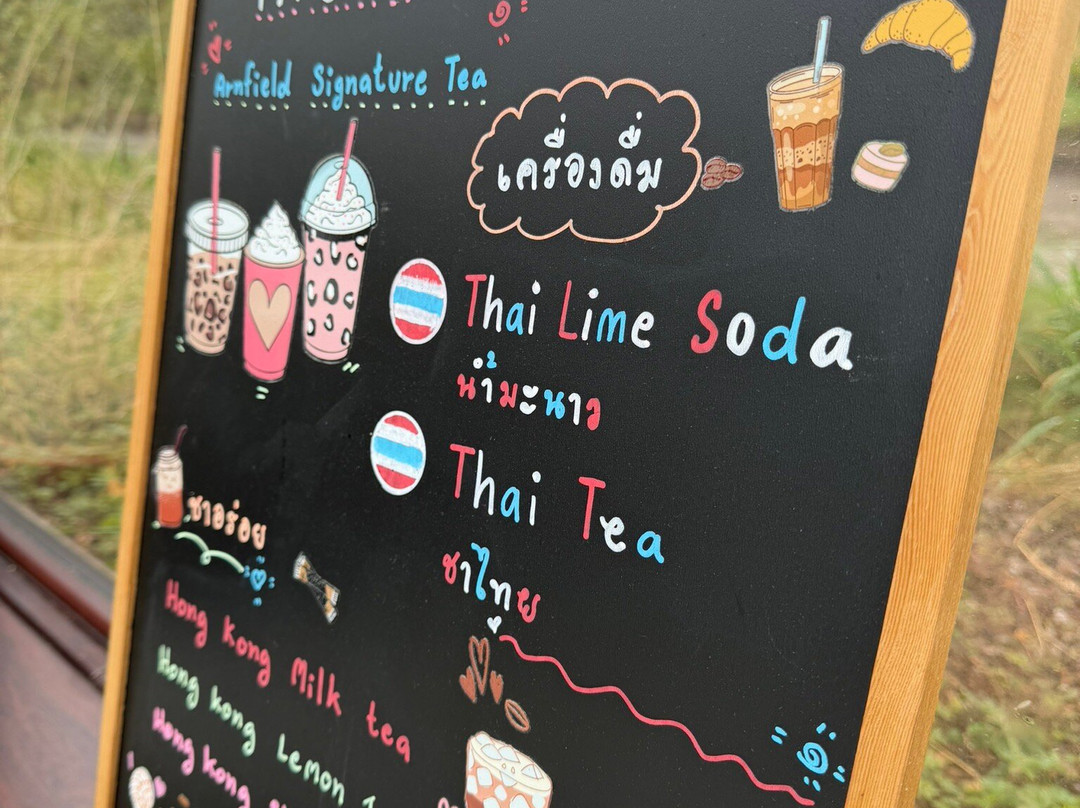 Arnfield Signature Tea
เครื่องดื่ม
Thai Lime Soda
น้ำมะนาว
Thai Tea
ชาไทย
ชาอร่อย
Hong Kong Milk tea
Hong kong Lemon
Hong kong